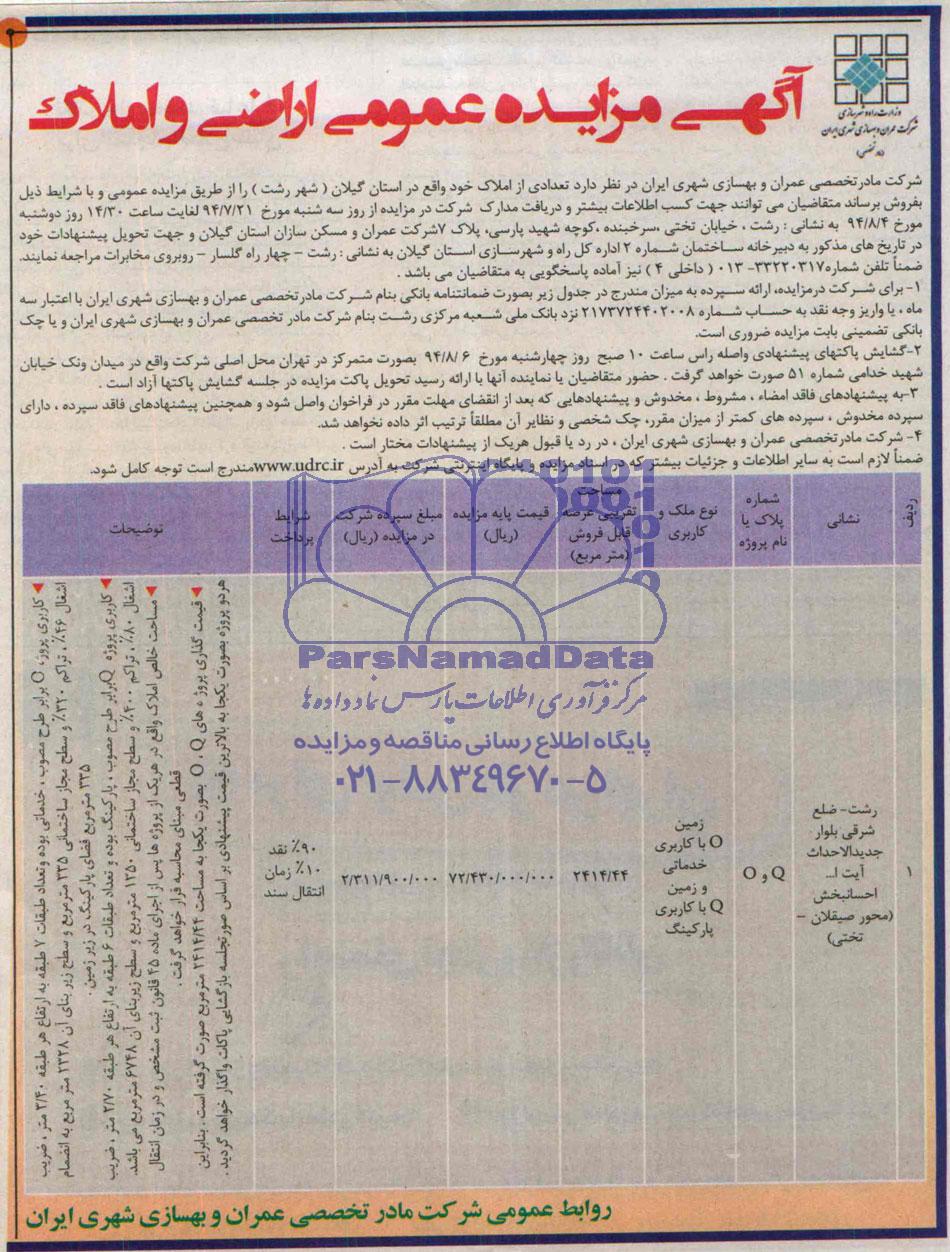 وزارت راه و شهرسازی
شرکت عمران و بهسازی شهری ایران
(مادر تخصصی)
آگهی مزایده عمومی اراضی و املاک
شرکت مادرتخصصی عمران و بهسازی شهری ایران در نظر دارد تعدادی از املاک خود واقع در استان گیلان ( شهر رشت ) را از طریق مزایده عمومی و با شرایط ذیل
بفروش برساند متقاضیان می توانند جهت کسب اطلاعات بیشتر و دریافت مدارک شرکت در مزایده از روز سه شنبه مورخ ۹۴/۷/۲۱ لغایت ساعت ۱۴/۳۰ روز دوشنبه
مورخ ۹۴/۸/۴ به نشانی : رشت ، خیابان تختی ،سرخبنده ،کوچه شهید پارسی، پلاک ۷شرکت عمران و مسکن سازان استان گیلان و جهت تحویل پیشنهادات خود
در تاریخ های مذکور به دبیرخانه ساختمان شماره ۲ اداره کل راه و شهرسازی استان گیلان به نشانی : رشت – چهار راه گلسار – روبروی مخابرات مراجعه نمایند.
ضمناً تلفن شماره۳۳۲۲۰۳۱۷- ۰۱۳ ( داخلی ۴ ) نیز آماده پاسخگویی به متقاضیان می باشد .
۱- برای شرکت درمزایده، ارائه سپرده به میزان مندرج در جدول زیر بصورت ضمانتنامه بانکی بنام شرکت مادرتخصصی عمران و بهسازی شهری ایران با اعتبار سه
ماه ، یا واریز وجه نقد به حساب شماره ۲۱۷۳۷۲۴۴۰۲۰۰۸ نزد بانک ملی شعبه مرکزی رشت بنام شرکت مادر تخصصی عمران و بهسازی شهری ایران و یا چک
بانکی تضمینی بابت مزایده ضروری است.
۲-گشایش پاکتهای پیشنهادی واصله راس ساعت ۱۰ صبح روز چهارشنبه مورخ ۹۴/۸/۶ بصورت متمرکز در تهران محل اصلی شرکت واقع در میدان ونک خیابان
شهید خدامی شماره ۵۱ صورت خواهد گرفت . حضور متقاضیان یا نماینده آنها با ارائه رسید تحویل پاکت مزایده در جلسه گشایش پاکتها آزاد است .
۳-به پیشنهادهای فاقد امضاء ، مشروط ، مخدوش و پیشنهادهایی که بعد از انقضای مهلت مقرر در فراخوان واصل شود و همچنین پیشنهادهای فاقد سپرده ، دارای
سپرده مخدوش ، سپرده های کمتر از میزان مقرر، چک شخصی و نظایر آن مطلقاً ترتیب اثر داده نخواهد شد.
۴- شرکت مادرتخصصی عمران و بهسازی شهری ایران ، در رد یا قبول هریک از پیشنهادات مختار است .
ضمناً لازم است به سایر اطلاعات و جزئیات بیشتر که در اسناد مزایده و پایگاه اینترنتی شرکت به آدرس www.udrc.irمندرج است توجه کامل شود.
ردیف
نشانی
شماره
پلاک یا
نام پروژه
نوع ملک و
کاربری
مساحت
تقریبی عرصه
قابل فروش
(متر مربع)
قیمت پایه مزایده
(ریال)
مبلغ سپرده شرکت
در مزایده (ریال)
شرایط
پرداخت
توضیحات
۱
رشت- ضلع
شرقی بلوار
جدیدالاحداث
آیت ا...
احسانبخش
(محور صیقلان –
تختی)
Q و O
زمین
O با کاربری
خدماتی
و زمین
Q با کاربری
پارکینگ
۲۴۱۴/۴۴
۷۲/۴۳۰/۰۰۰/۰۰۰
۲/۳۱۱/۹۰۰/۰۰۰
۹۰٪ نقد
۱۰٪ زمان
انتقال سند
کاربری پروژه O برابر طرح مصوب ، خدماتی بوده وتعداد طبقات ۷ طبقه به ارتفاع هر طبقه ۳/۴۰ متر ، ضریب
اشغال ۴۶٪ ، تراکم ۳۲۰٪ و سطح مجاز ساختمانی ۳۳۵ مترمربع و سطح زیر بنای آن ۲۳۲۸ متر مربع به انضمام
۳۳۵ مترمربع فضای پارکینگ در زیر زمین .
کاربری پروژه Qبرابر طرح مصوب ، پارکینگ بوده و تعداد طبقات ۶ طبقه به ارتفاع هر طبقه ۲/۷۰ متر ، ضریب
اشغال ۸۰٪ ، تراکم ۴۰۰٪ و سطح مجاز ساختمانی ۱۳۵۰ مترمربع و سطح زیربنای آن ۶۷۴۸ مترمربع می باشد.
مساحت خالص املاک واقع در هریک از پروژه ها پس از اجرای ماده ۴۵ قانون ثبت مشخص و در زمان انتقال
قطعی مبنای محاسبه قرار خواهد گرفت .
قیمت گذاری پروژه های O ، Q بصورت یکجا به مساحت ۲۴۱۴/۴۴ مترمربع صورت گرفته است . بنابراین
هر دو پروژه بصورت یکجا به بالاترین قیمت پیشنهادی بر اساس صورتجلسه بازگشایی پاکات واگذار خواهد گردید .
ParsNamadData
مرکز فرآوری اطلاعات پارس نماد داده ها
پایگاه اطلاع رسانی مناقصه و مزایده
۰۲۱-۸۸۳۴۹۶۷۰-۵
روابط عمومی شرکت مادر تخصصی عمران و بهسازی شهری ایران